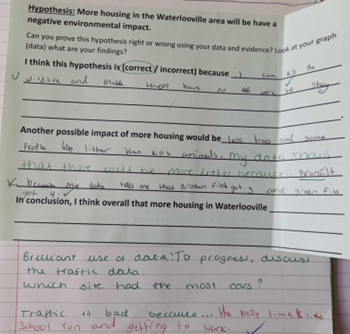 Hypothesis: More housing in the Waterlooville area will be have a
negative environmental impact.
Can you prove this hypothesis right or wrong using your data and evidence? Look at your graph
(data) what are your findings?
I think this hypothesis is (correct / incorrect) because I can kill the
wildlife and make them have no to stay
Another possible impact of more housing would be less trees and some
People litter then kills animals. My data shows
that there will be more litter because... Branfils
because my data tells me that Brown Field got 3 and green Field
got 4.
In conclusion, I think overall that more housing in Waterlooville
Brilliant use of data! To progress, discuss
the traffic data.
Which site had the most cars?
Traffic is bad because... the bezy time is like
School run and getting to work.